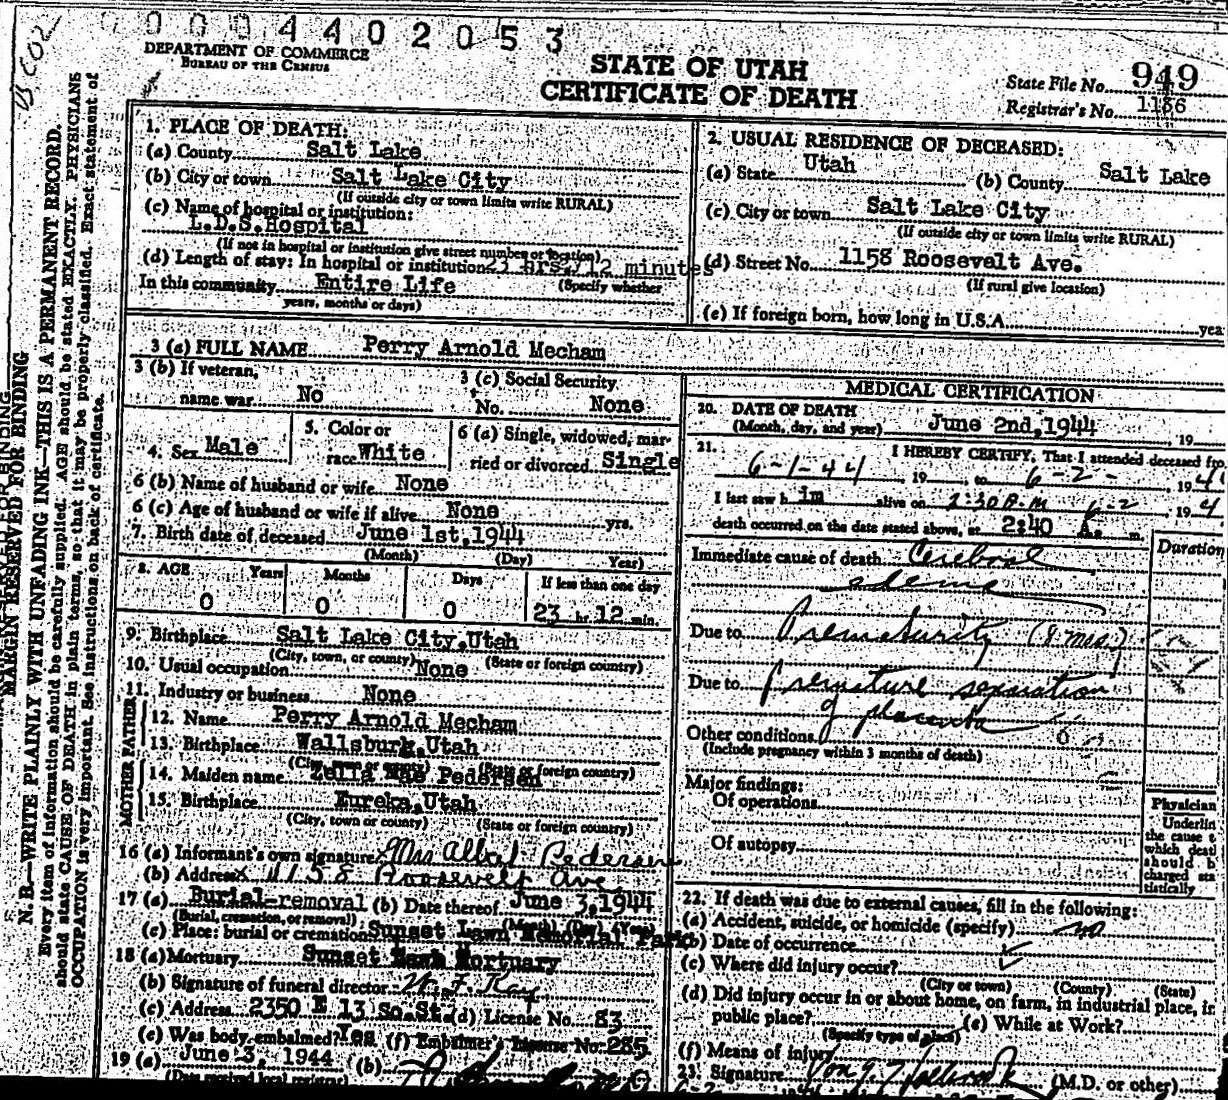 0004402053
DEPARTMENT OF COMMERCE
BUREAU OF THE CENSUS
STATE OF UTAH
CERTIFICATE OF DEATH
State File No. 949
Registrar's No. 1186
MARGIN RESERVED FOR BINDING
N. B.—WRITE PLAINLY WITH UNFADING INK—THIS IS A PERMANENT RECORD.
Every item of information should be carefully supplied. AGE should be stated EXACTLY. PHYSICIANS
should state CAUSE OF DEATH in plain terms, so that it may be properly classified. Exact statement of
OCCUPATION is very important. See instructions on back of certificate.
1. PLACE OF DEATH:
(a) County Salt Lake
(b) City or town Salt Lake City
(If outside city or town limits write RURAL)
(c) Name of hospital or institution:
L.D.S. Hospital
(If not in hospital or institution give street number or location)
(d) Length of stay: In hospital or institution 23 hrs./12 minutes
In this community Entire Life (Specify whether
years, months or days)
2. USUAL RESIDENCE OF DECEASED:
(a) State Utah (b) County Salt Lake
(c) City or town Salt Lake City
(If outside city or town limits write RURAL)
(d) Street No. 1158 Roosevelt Ave.
(If rural give location)
(e) If foreign born, how long in U.S.A. yea
3 (a) FULL NAME Perry Arnold Mecham
3 (b) If veteran,
name war No
3 (c) Social Security
No. None
4. Sex Male
5. Color or
race White
6 (a) Single, widowed, mar-
ried or divorced Single
6 (b) Name of husband or wife None
6 (c) Age of husband or wife if alive None yrs.
7. Birth date of deceased June 1st, 1944
(Month) (Day) Year)
8. AGE Years Months Days If less than one day
0 0 0 23 hr. 12 min.
9. Birthplace Salt Lake City, Utah
(City, town, or county) (State or foreign country)
10. Usual occupation None
11. Industry or business None
FATHER
12. Name Perry Arnold Mecham
13. Birthplace Wallsburg, Utah
(City, town or county) (State or foreign country)
MOTHER
14. Maiden name Zella Mae Pedersen
15. Birthplace Eureka, Utah
(City, town or county) (State or foreign country)
16 (a) Informant's own signature Mrs Albert Pedersen
(b) Address 1158 Roosevelt Ave
17 (a) Burial-removal (b) Date thereof June 3, 1944
(Burial, cremation, or removal) (Month) (Day) (Year)
(c) Place: burial or cremation Sunset Lawn Memorial Park
18 (a) Mortuary Sunset Lawn Mortuary
(b) Signature of funeral director W. F. Kay
(c) Address 2350 E 13 So. St. (d) License No. 83
(e) Was body embalmed? Yes (f) Embalmer's License No. 285
19 (a) June 3, 1944 (b)
(Date received local registrar)
MEDICAL CERTIFICATION
20. DATE OF DEATH
(Month, day, and year) June 2nd, 1944, 19
21. I HEREBY CERTIFY, That I attended deceased fro
6-1-44, 19, to 6-2-, 194
I last saw h im alive on 2:30 A.M 6-2, 194
death occurred on the date stated above, at 2:40 A. m.
Duration
Immediate cause of death Cerebral
edema
Due to Prematurity (8 mos.)
Due to premature separation
of placenta
Other conditions
(Include pregnancy within 3 months of death)
Major findings:
Of operations
Of autopsy
Physician
Underlin
the cause t
which deat
should b
charged sta
tistically
22. If death was due to external causes, fill in the following:
(a) Accident, suicide, or homicide (specify) no
(b) Date of occurrence
(c) Where did injury occur?
(City or town) (County) (State)
(d) Did injury occur in or about home, on farm, in industrial place, in
public place? (e) While at Work?
(Specify type of place)
(f) Means of injury
23. Signature (M.D. or other)